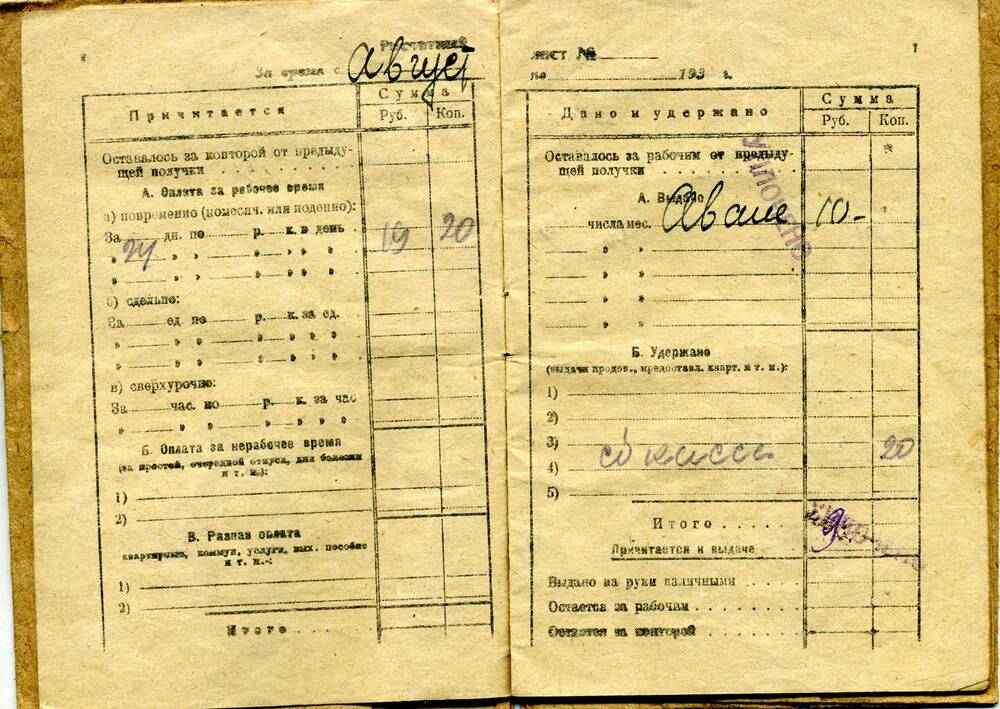 Расчетный
За время с Август
Причитается
Сумма
Руб. Коп.
Оставалось за конторой от предыду-
щей получки
А. Оплата за рабочее время
а) повременно (помесяч. или поденно):
За дн. по р. к. в день
24 19 20
б) сдельно:
За ед. по р. к. за ед.
в) сверхурочно:
За час. по р. к. за час
Б. Оплата за нерабочее время
(за простой, очередной отпуск, дни болезни
и т. п.):
1)
2)
В. Разная оплата
квартирные, коммун. услуги, вых. пособие
и т. п.:
1)
2)
Итого
лист №
по 193 г.
Дано и удержано
Сумма
Руб. Коп.
Оставалось за рабочим от предыду-
щей получки
УПЛОЧЕНО
А. Выдано
числа мес. Аванс 10-
Б. Удержано
(выдачи кредов., предоставл. кварт. и т. п.):
1)
2)
3)
4) 20
5)
Итого
9
Причитается к выдаче
Выдано на руки наличными
Остается за рабочим
Остается за конторой